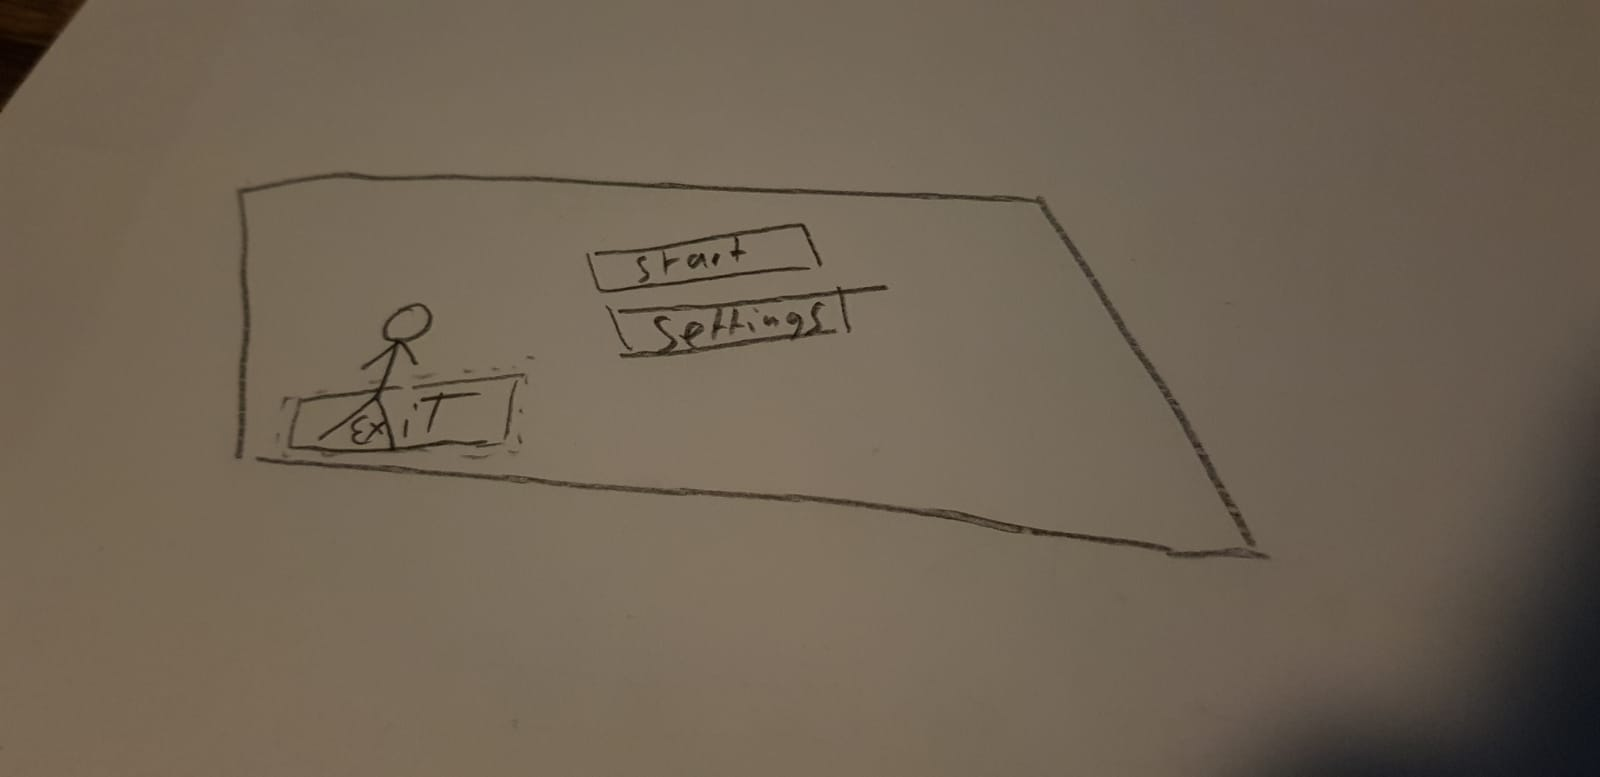 Start
Settings
ExiT